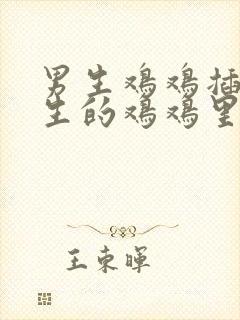 男生鸡鸡插
生的鸡鸡里
王束晖